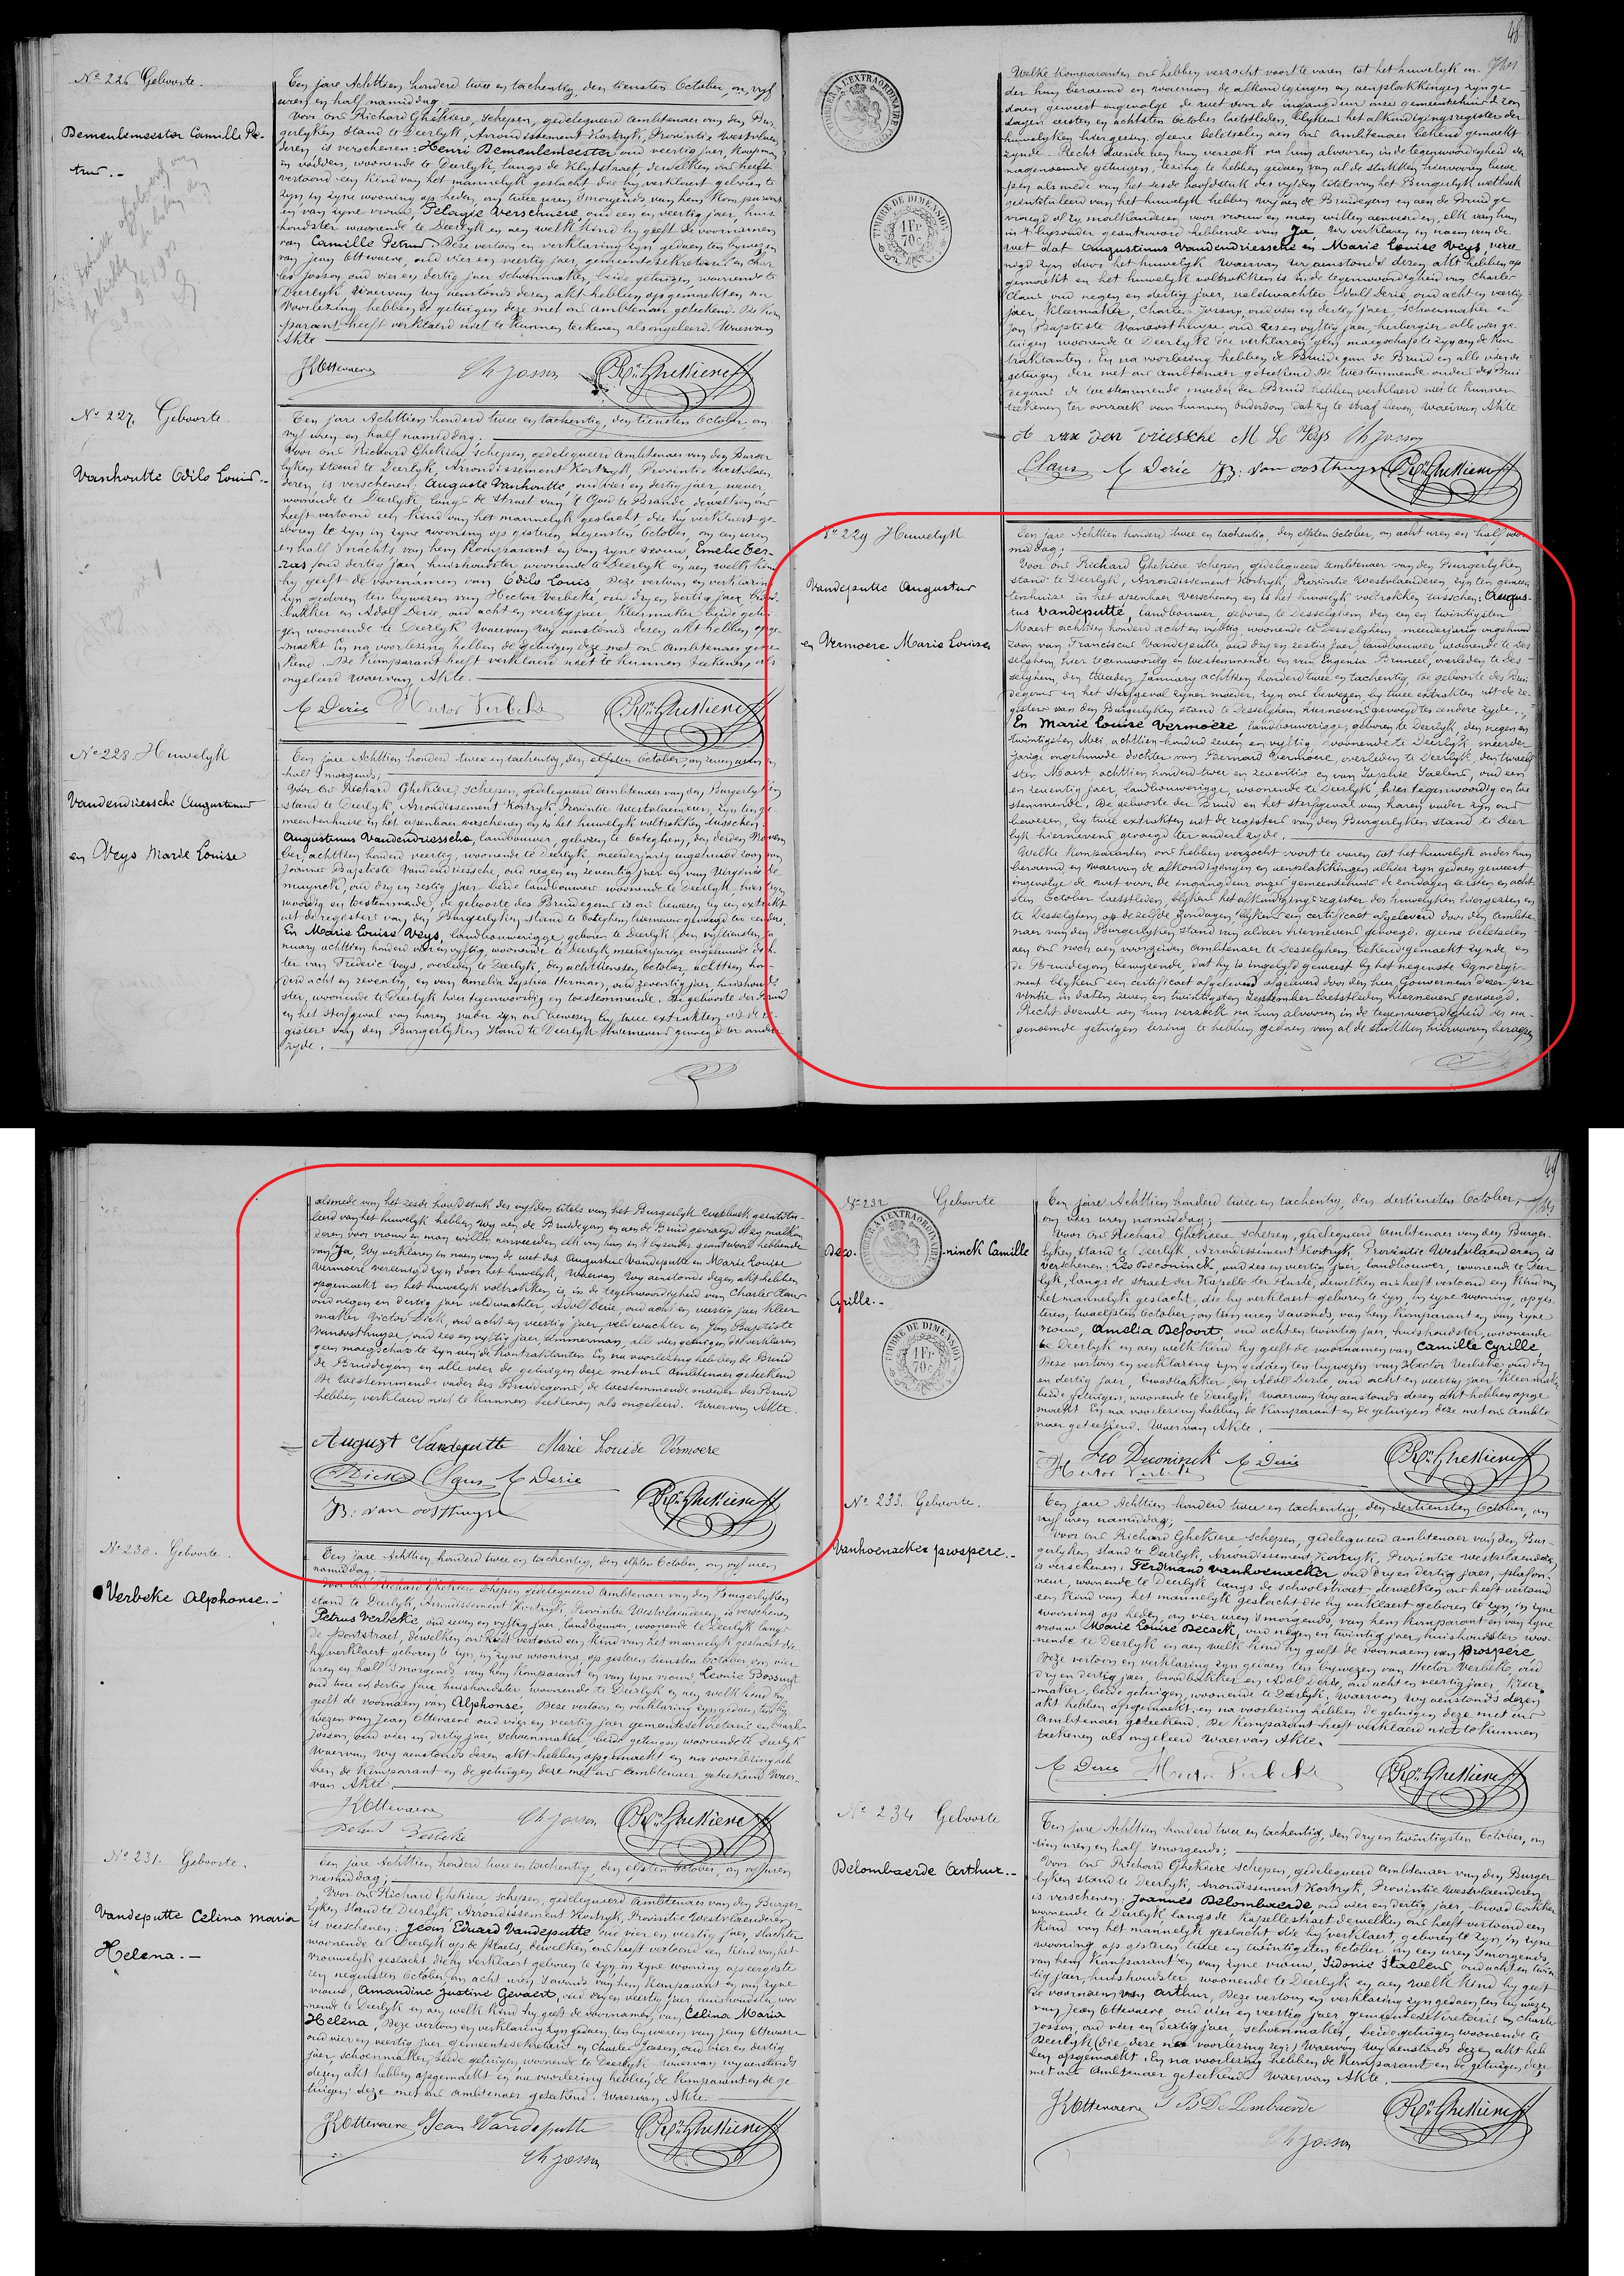 Nº 226 Geboorte.
Demeulemeester Camille Pe-
trus.-
Ten jare Achttien honderd twee en tachentig, den tiensten October, om vyf
uren en half namiddag;
Voor ons Richard Ghekiere, schepen, gedelegueerd ambtenaer van den Bur-
gerlyken stand te Deerlyk, Arrondissement Kortryk, Provintie Westvlaen-
deren is verschenen: Henri Demeulemeester oud veertig jaer, koopman
in vodden, woonende te Deerlyk, langs de Klytstraet, dewelken ons heeft
vertoond een kind van het mannelyk geslacht die hy verklaert geboren te
zyn in zyne wooning op heden, om twee uren s'morgends van hem komparant
en van zyne vrouw, Pelagie Verschuere, oud een en veertig jaer, huis
houdster woonende te Deerlyk en aen welk kind hy geeft de voornamen
van Camille Petrus. Deze vertoon en verklaring zyn gedaen ten bywezen
van Jean Ottevaere, oud vier en veertig jaer, gemeentesekretaris en Char
les Josson, oud vier en dertig jaer schoenmaker, beide getuigen, woonende te
Deerlyk. Waervan wy aenstonds dezen akt hebben opgemaekt en na
voorlezing hebben de getuigen deze met ons ambtenaer geteekend. De kom
parant heeft verklaerd niet te kunnen teekenen als ongeleerd. Waervan
Akte
JKOttevaere Ch Josson Rd Ghekiere
Nº 227. Geboorte.
Vanhoutte Odilo Louis.-
Ten jare Achttien honderd twee en tachentig, den tiensten October, om
vyf uren en half namiddag;
Voor ons Richard Ghekiere, schepen, gedelegueerd ambtenaer van den Burger
lyken stand te Deerlyk, Arrondissement Kortryk, Provintie Westvlaen-
deren is verschenen: Auguste Vanhoutte, oud vier en dertig jaer, wever,
woonende te Deerlyk langs de straet van 't Goed te Brande, dewelken ons
heeft vertoond een kind van het mannelyk geslacht, die hy verklaert ge-
boren te zyn in zyne wooning op gisteren, negensten October, om een uren
en half s'nachts van hem komparant en van zyne vrouw, Emelie Ver-
zas, oud dertig jaer, huishoudster woonende te Deerlyk en aen welk kind
hy geeft de voornamen van Odilo Louis. Deze vertoon en verklaring
zyn gedaen ten bywezen van Hector Verbeke, oud dry en dertig jaer, brood-
bakker en Adolf Derie, oud acht en veertig jaer, kleermaker beide getui-
gen woonende te Deerlyk. Waervan wy aenstonds dezen akt hebben opge-
maekt en na voorlezing hebben de getuigen deze met ons ambtenaer getee-
kend. De komparant heeft verklaerd niet te kunnen teekenen als
ongeleerd waervan Akte.
A Derie Hector Verbeke Rd Ghekiere
Nº 228. Huwelyk
Vandendriessche Augustinus
en Veys Marie Louise
Ten jare Achttien honderd twee en tachentig, den elfsten October, om zeven uren en
half s'morgends;
Voor ons Richard Ghekiere, schepen, gedelegueerd ambtenaer van den Burgerlyken
stand te Deerlyk, Arrondissement Kortryk, Provintie Westvlaenderen, zyn ten ge-
meentenhuise in het openbaer verschenen en is het huwelyk voltrokken tusschen:
Augustinus Vandendriessche, landbouwer, geboren te Ooteghem, den derden Novem
ber, achttien honderd veertig, woonende te Deerlyk, meerderjarig ongehuwd zoon van
Joannes Baptiste Vandendriessche, oud negen en zeventig jaer en van Virginie De
muynck, oud dry en zestig jaer beide landbouwers woonende te Deerlyk, hier tegen
woordig en toestemmende, de geboorte des Bruidegoms is ons bewezen by een extrakt
uit de registers van den Burgerlyken stand te Ooteghem, hiernevens gevoegd ter eendere,
En Marie Louise Veys, landbouwerigge, geboren te Deerlyk, den vyftiensten Ja
nuary achttien honderd vier en vyftig, woonende te Deerlyk, meerderjarige ongehuwde doch
ter van Frederic Veys, overleden te Deerlyk, den achttiensten October, achttien hon
derd acht en zeventig, en van Amelia Sophia Herman, oud zeventig jaer, huishoud-
ster, woonende te Deerlyk hier tegenwoordig en toestemmende. De geboorte der Bruid
en het sterfgeval van haren vader zyn ons bewezen by twee extrakten uit de re-
gisters van den Burgerlyken stand te Deerlyk hiernevens gevoegd ter ander
zyde.
48
TIMBRE A L'EXTRAORDINAIRE
TIMBRE DE DIMENSION
1 Fr
70 c
Welke komparanten ons hebben verzocht voort te varen tot het huwelyk on-
der hun beraemd en waervan de afkondigingen en aenplakkingen zyn ge-
daen geweest ongevolge de wet voor de ingangdeur onzes gemeentehuis de zon
dagen eersten en achtsten October laetstleden, blykens het afkondigingsregister der
huwelyken hiergezien, geene beletselen aen ons ambtenaer bekend gemaekt
zynde. Recht doende aen hun verzoek na hun alvooren in de tegenwoordigheid der
nagenoemde getuigen, lezing te hebben gedaen van al de stukken hiervooren beroe
pen alsmede van het zesde hoofdstuk des vyfden titels van het Burgerlyk wetboek
geïntituleerd van het huwelyk hebben wy aen de Bruidegom en aen de Bruid ge
vraegd of zy malkanderen voor vrouw en man willen aenveerden, elk van hun
in 't byzonder geantwoord hebbende van Ja. Wy verklaren en naem van de
wet dat Augustinus Vandendriessche en Marie Louise Veys, veree
nigd zyn door het huwelyk. Waervan wy aenstonds dezen akt hebben op
gemaekt en het huwelyk voltrokken is in de tegenwoordigheid van Charles
Claus oud negen en dertig jaer, veldwachter, Adolf Derie, oud acht en veertig
jaer, kleermaker, Charles Josson, oud vier en dertig jaer, schoenmaker en
Jan Baptiste Vanoosthuyse oud zes en vyftig jaer, herbergier alle vier ge
tuigen woonende te Deerlyk die verklaren geen maegschap te zyn aen de kon
traktanten. En na voorlezing hebben de Bruidegom de Bruid en alle vier de
getuigen deze met ons ambtenaer geteekend. De toestemmende ouders des Brui
degoms de toestemmende moeder der Bruid hebben verklaerd niet te kunnen
teekenen ter oorzaek van hunnen ouderdom dat zy te straf beven, waervan Akte
A van den driessche M L Veys Ch Josson
Claus A Derie JB: van oosthuyse Rd Ghekiere
Nº 229 Huwelyk
Vandeputte Augustus
en Vermoere Marie Louise
Ten jare Achttien honderd twee en tachentig, den elfsten October, om acht uren en half voor
middag;
Voor ons Richard Ghekiere schepen, gedelegueerd ambtenaer van den Burgerlyken
stand te Deerlyk, Arrondissement Kortryk, Provintie Westvlaenderen zyn ten gemeen
tenhuize in het openbaer verschenen en is het huwelyk voltrokken tusschen: Augus-
tus Vandeputte, landbouwer, geboren te Desselghem, den een en twintigsten
Maert achttien honderd acht en vyftig, woonende te Desselghem, meerderjarig ongehuwd
zoon van Franciscus Vandeputte, oud dry en zestig jaer, landbouwer, woonende te Des
selghem, hier tegenwoordig en toestemmende en van Eugenia Bruneel, overleden te Des-
selghem, den tweeden January achttien honderd twee en tachentig, de geboorte des Brui
degoms en het sterfgeval zyner moeder, zyn ons bewezen by twee extrakten uit de re-
gisters van den Burgerlyken stand te Desselghem hiernevens gevoegd ter eendere zyde.
En Marie Louise Vermoere, landbouwerigge, geboren te Deerlyk, den negen en
twintigsten Mei, achttien honderd zeven en vyftig, woonende te Deerlyk, meerder
jarige ongehuwde dochter van Bernard Vermoere, overleden te Deerlyk, den twaelf
sten Maert, achttien honderd twee en zeventig en van Sophie Saelens, oud een
en zeventig jaer, landbouwerigge, woonende te Deerlyk, hier tegenwoordig en toe
stemmende. De geboorte der Bruid en het sterfgeval van haren vader zyn ons
bewezen, by twee extrakten uit de registers van den Burgerlyken stand te Deer
lyk hiernevens gevoegd ter anderezyde.
Welke komparanten ons hebben verzocht voort te varen tot het huwelyk onder hun
beraemd en waervan de afkondigingen en aenplakkingen alhier zyn gedaen geweest
ongevolge de wet voor de ingangdeur onzes gemeentehuis de zondagen eersten en acht
sten October laetstleden, blykens het afkondigingsregister der huwelyken hiergezien en
te Desselghem op dezelfde zondagen, blykens een certificaet afgeleverd door den ambte
naer van den Burgerlyken stand van aldaer hiernevens gevoegd. geene beletselen
aen ons noch aen voorzeiden ambtenaer te Desselghem bekend gemaekt zynde, en
de Bruidegom bewyzende, dat hy is ingelyfd geweest by het negenste Ligneregi-
ment blykens een certificaet afgeleverd afgeleverd door den heer Gouverneur dezer pro
vintie in daten zeven en twintigsten September laetstleden hiernevens gevoegd.
Recht doende aen hun verzoek na hun alvooren in de tegenwoordigheid der na-
genoemde getuigen lezing te hebben gedaen van al de stukken hiervooren beroepen
alsmede van het zesde hoofdstuk des vyfden titels van het Burgerlyk wetboek geïntitu-
leerd van het huwelyk hebben wy aen de Bruidegom en aen de Bruid gevraegd of zy malkan
deren voor vrouw en man willen aenveerden, elk van hun in 't byzonder geantwoord hebbende
van Ja, Wy verklaren en naem van de wet dat Augustus Vandeputte en Marie Louise
Vermoere vereenigd zyn door het huwelyk. Waervan wy aenstonds dezen akt hebben
opgemaekt en het huwelyk voltrokken is in de tegenwoordigheid van Charles Claus
oud negen en dertig jaer veldwachter, Adolf Derie, oud acht en veertig jaer kleer
maker Victor Dick, oud acht en veertig jaer, veldwachter en Jan Baptiste
Vanoosthuyse, oud zes en vyftig jaer, timmerman, alle vier getuigen die verklaren
geen maegschap te zyn aen de kontraktanten. En na voorlezing hebben de Bruid
de Bruidegom en alle vier de getuigen deze met ons ambtenaer geteekend
De toestemmende vader des Bruidegoms, de toestemmende moeder der Bruid
hebben verklaerd niet te kunnen teekenen als ongeleerd. Waervan Akte.
August Vandeputte Marie Louise Vermoere
VDick Claus A Derie
JB: van oosthuyse Rd Ghekiere
Nº 230. Geboorte.
Verbeke Alphonse.-
Ten jare Achttien honderd twee en tachentig, den elfsten October, om vyf uren
namiddag;
Voor ons Richard Ghekiere schepen gedelegueerd ambtenaer van den Burgerlyken
stand te Deerlyk, Arrondissement Kortryk, Provintie Westvlaenderen, is verschenen
Petrus Verbeke, oud zeven en vyftig jaer, landbouwer, woonende te Deerlyk langs
de Pontstraet, dewelken ons heeft vertoond een kind van het mannelyk geslacht die
hy verklaert geboren te zyn, in zyne wooning, op gisteren tiensten October om vier
uren en half s'morgends, van hem komparant en van zyne vrouw, Leonie Bossuyt
oud twee en dertig jaer huishoudster woonende te Deerlyk en aen welk kind hy
geeft de voornaem van Alphonse. Deze vertoon en verklaring zyn gedaen ten by
wezen van Jean Ottevaere oud vier en veertig jaer gemeentesekretaris en Charles
Josson, oud vier en dertig jaer schoenmaker, beide getuigen woonende te Deerlyk
Waervan wy aenstonds dezen akt hebben opgemaekt en na voorlezing heb
ben de komparant en de getuigen deze met ons ambtenaer geteekend Waer-
van Akte
JKOttevaere Ch Josson Rd Ghekiere
Petrus Verbeke
Nº 231. Geboorte.
Vandeputte Celina Maria
Helena.-
Ten jare Achttien honderd twee en tachentig, den elfsten October, om vyf uren
namiddag;
Voor ons Richard Ghekiere schepen, gedelegueerd ambtenaer van den Burger-
lyken stand te Deerlyk Arrondissement Kortryk, Provintie Westvlaenderen
is verschenen: Jean Eduard Vandeputte oud vier en veertig jaer, slachter
woonende te Deerlyk op de Plaets, dewelken ons heeft vertoond een kind van het
vrouwelyk geslacht die hy verklaert geboren te zyn in zyne wooning op eergiste
ren negensten October om acht uren s'avonds van hem komparant en van zyne
vrouw, Amandine Justine Gevaert, oud dry en veertig jaer huishoudster woo
nende te Deerlyk en aen welk kind hy geeft de voornamen van Celina Maria
Helena. Deze vertoon en verklaring zyn gedaen, ten bywezen van Jean Ottevaere
oud vier en veertig jaer gemeentesekretaris en Charles Josson, oud vier en dertig
jaer, schoenmaker, beide getuigen, woonende te Deerlyk waervan wy aenstonds
dezen akt hebben opgemaekt en na voorlezing hebben de komparant en de ge
tuigen deze met ons ambtenaer geteekend. Waervan Akte.
JKOttevaere Jean Vandeputte Rd Ghekiere
Ch Josson
49
Nº 232 Geboorte
Deco- -ninck Camille
Cyrille.-
TIMBRE A L'EXTRAORDINAIRE
TIMBRE DE DIMENSION
1 Fr
70 c
Ten jare Achttien honderd twee en tachentig, den dertiensten October,
om vier uren namiddag;
Voor ons Richard Ghekiere schepen, gedelegueerd ambtenaer van den Burger-
lyken stand te Deerlyk, Arrondissement Kortryk, Provintie Westvlaenderen is
verschenen: Leo Deconinck, oud zes en veertig jaer, landbouwer, woonende te Deer
lyk, langs de straet der Kapelle ter Ruste, dewelken ons heeft vertoond een kind van
het mannelyk geslacht, die hy verklaert geboren te zyn in zyne wooning, op gis
teren, twaelfsten October, om tien uren s'avonds, van hem komparant en van zyne
vrouw, Amelia Defoort, oud acht en twintig jaer, huishoudster, woonende
te Deerlyk en aen welk kind hy geeft de voornamen van Camille Cyrille,
Deze vertoon en verklaring zyn gedaen ten bywezen van Hector Verbeke, oud dry
en dertig jaer, broodbakker, en Adolf Derie, oud acht en veertig jaer kleermaker
beide getuigen, woonende te Deerlyk. Waervan wy aenstonds dezen akt hebben opge
maekt En na voorlezing hebben de komparant en de getuigen deze met ons ambte
naer geteekend. Waervan Akte.
Leo Deconinck A Derie Rd Ghekiere
Hector Verbeke
Nº 233. Geboorte.
Vanhoenacker prospere.-
Ten jare Achttien honderd twee en tachentig, den dertiensten October, om
vyf uren namiddag;
Voor ons Richard Ghekiere, schepen, gedelegueerd ambtenaer van den Bur-
gerlyken stand te Deerlyk, Arrondissement Kortryk, Provintie Westvlaenderen
is verschenen: Ferdinand Vanhoenacker oud dry en dertig jaer, plafon-
neur, woonende te Deerlyk langs de schoolstraet, dewelken ons heeft vertoond
een kind van het mannelyk geslacht die hy verklaert geboren te zyn, in zyne
wooning op heden, om vier uren s'morgends, van hem komparant en van zyne
vrouw Marie Louise Decock, oud negen en twintig jaer, huishoudster woo-
nende te Deerlyk en aen welk kind hy geeft de voornaem van prospere
Deze vertoon en verklaring zyn gedaen ten bywezen van Hector Verbeke, oud
dry en dertig jaer, broodbakker en Adolf Derie, oud acht en veertig jaer, kleer-
maker, beide getuigen, woonende te Deerlyk, waervan wy aenstonds dezen
akt hebben opgemaekt, en na voorlezing hebben de getuigen deze met ons
ambtenaer geteekend. De komparant heeft verklaerd niet te kunnen
teekenen als ongeleerd waervan Akte.
A Derie Hector Verbeke Rd Ghekiere
Nº 234 Geboorte
Delombaerde Arthur.-
Ten jare Achttien honderd twee en tachentig, den dry en twintigsten October, om
tien uren en half s'morgends;
Voor ons Richard Ghekiere schepen, gedelegueerd ambtenaer van den Burger
lyken stand te Deerlyk, Arrondissement Kortryk, Provintie Westvlaenderen
is verschenen: Joannes Delombaerde, oud vier en dertig jaer, broodbakker
woonende te Deerlyk langs de Kapellestraet dewelken ons heeft vertoond een
kind van het mannelyk geslacht die hy verklaert, geboren te zyn, in zyne
wooning op gisteren twee en twintigsten October, om een uren s'morgends,
van hem komparant en van zyne vrouw, Sidonie Staelens, oud acht en twin
tig jaer huishoudster, woonende te Deerlyk en aen welk kind hy geeft
de voornaem van Arthur, Deze vertoon en verklaring zyn gedaen, ten bywezen
van Jean Ottevaere oud vier en veertig jaer, gemeentesekretaris en Charles
Josson, oud vier en dertig jaer, schoenmaker, beide getuigen woonende te
Deerlyk (die deze na voorlezing zeg:) Waervan wy aenstonds dezen akt heb
ben opgemaekt. En na voorlezing hebben de komparant en de getuigen, deze
met ons ambtenaer geteekend Waervan Akte.
JKOttevaere J B De Lombaerde Rd Ghekiere
Ch Josson